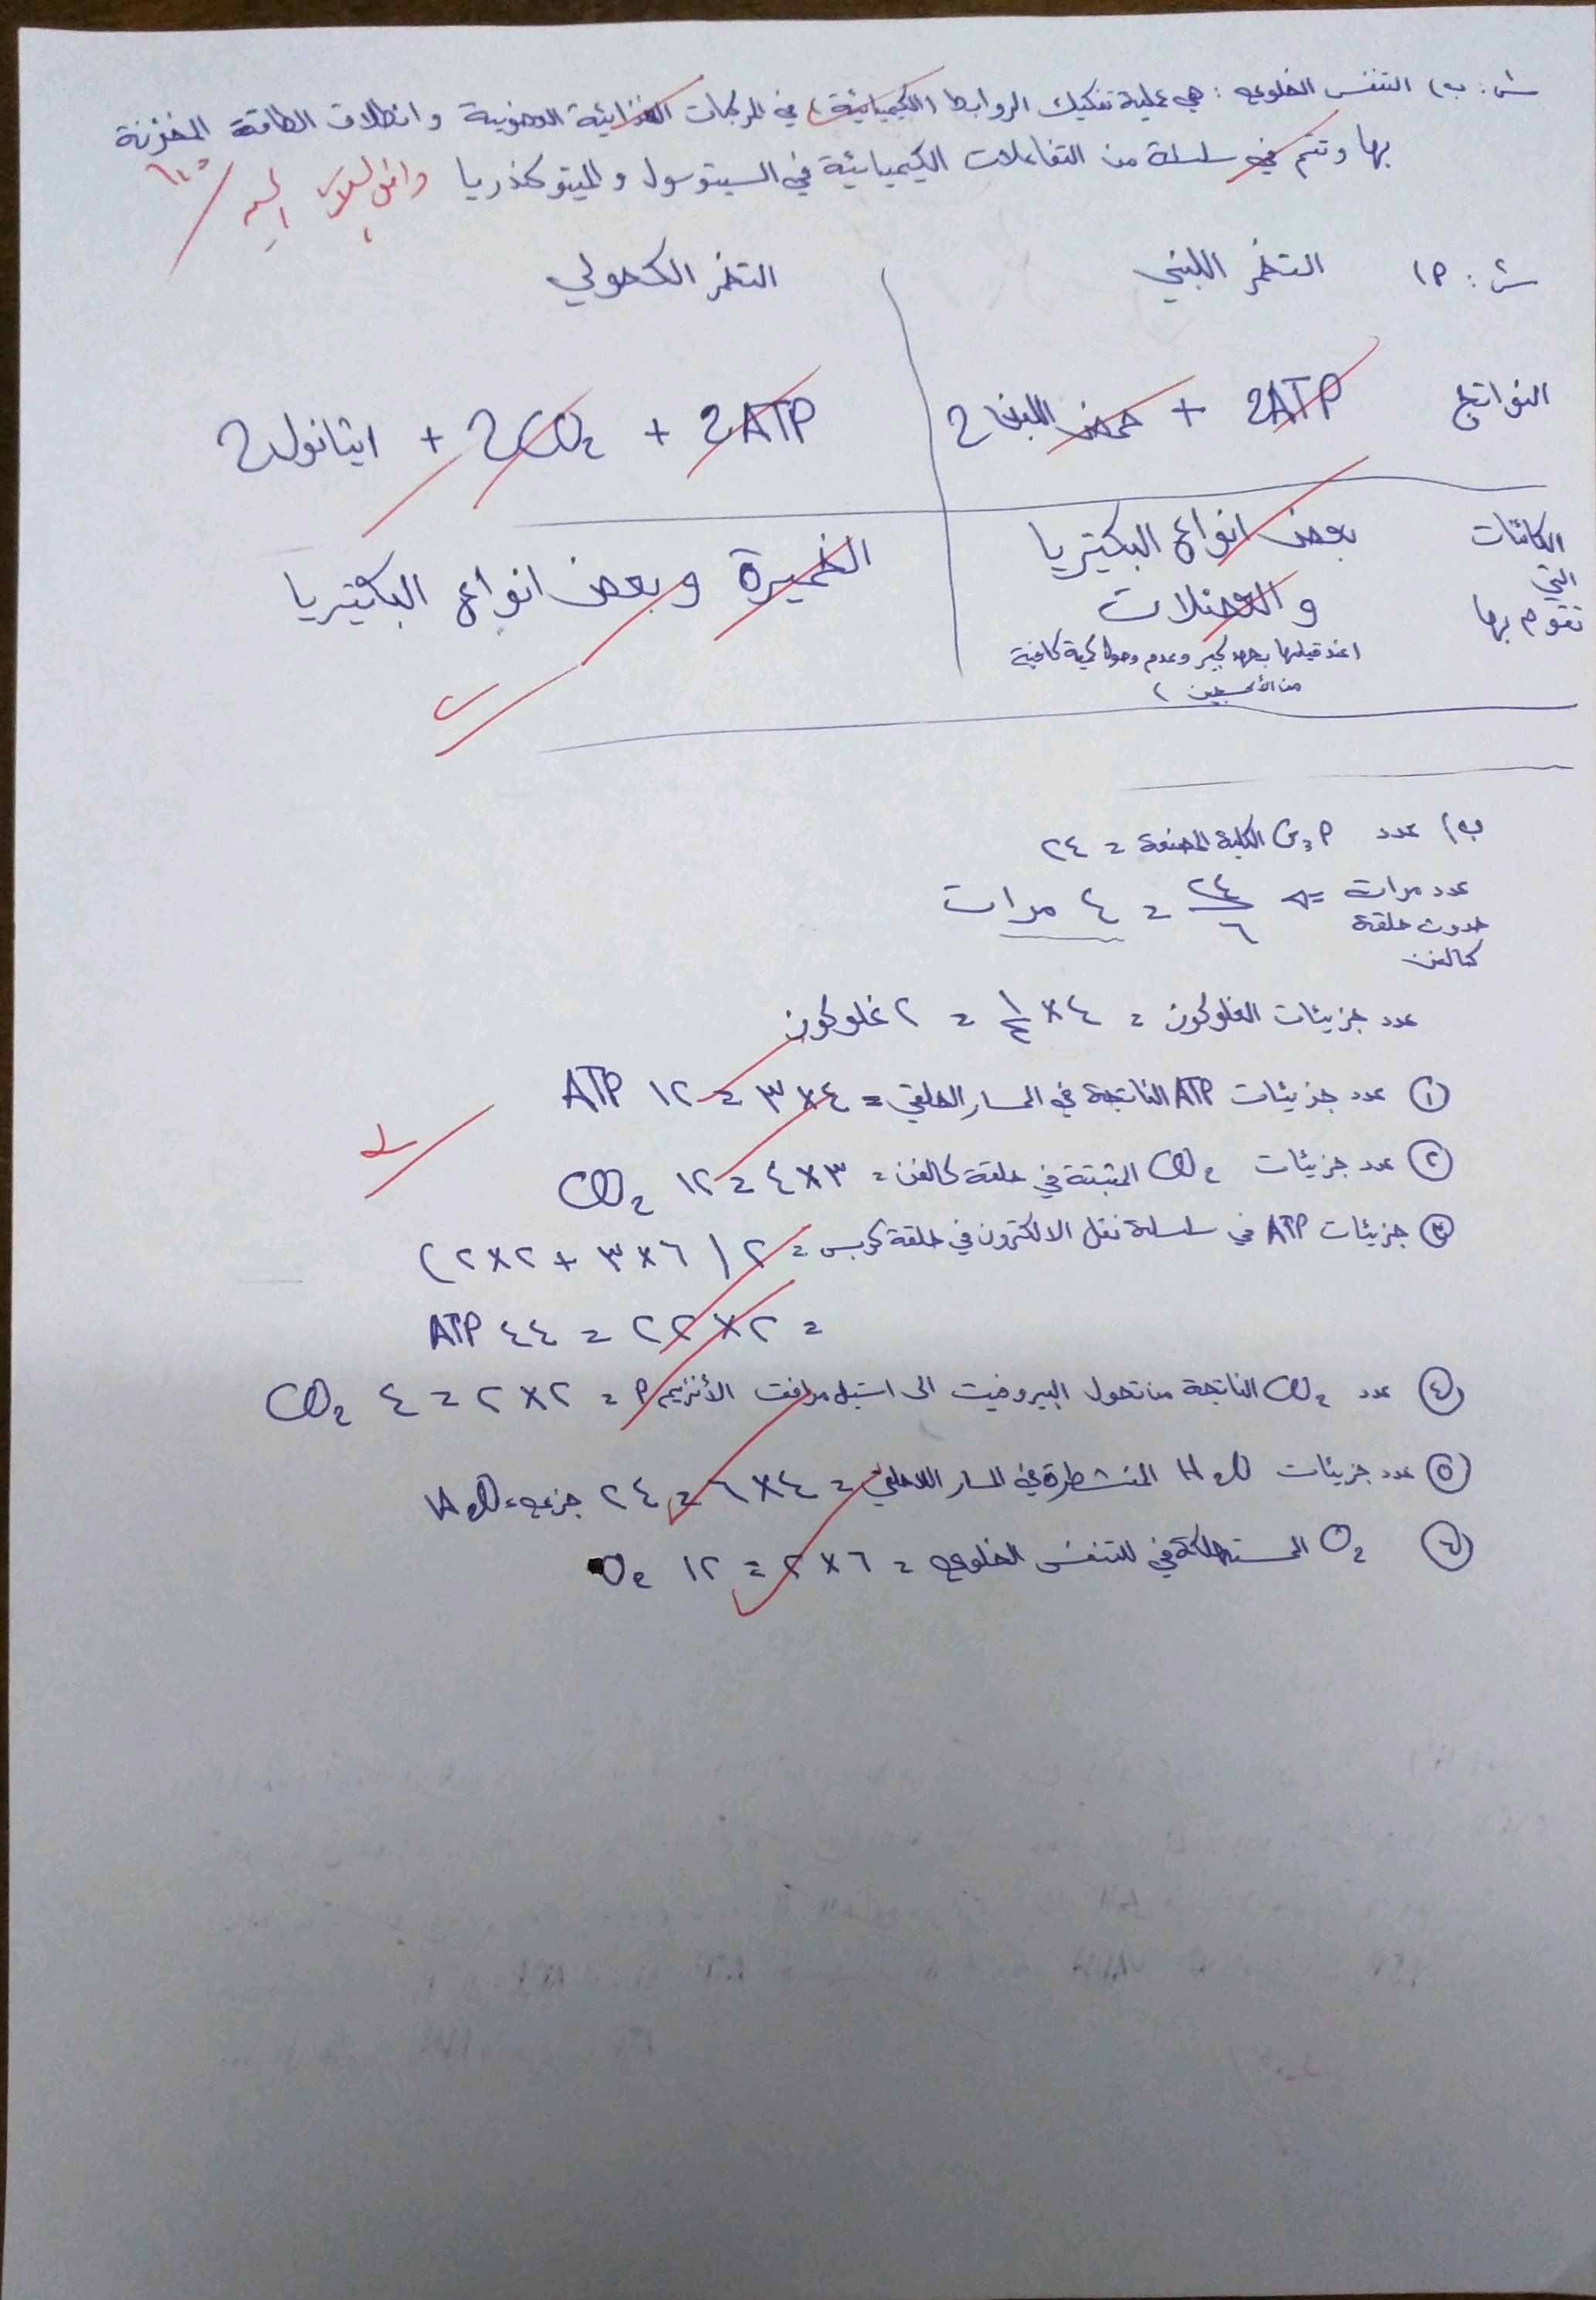 س: ب) التنفس الخلوي: هي عملية تفكيك الروابط (الكيميائية) في المركبات الغذائية العضوية وانطلاق الطاقة المخزنة
بها وتتم في سلسلة من التفاعلات الكيميائية في السيتوسول والميتوكندريا
س: ٩) التخمر اللبني التخمر الكحولي
النواتج 2ATP + حمض اللبن 2 2ATP + 2CO₂ + ايثانول 2
الكائنات التي تقوم بها
بعض انواع البكتيريا
والعضلات
(عند قيامها بجهد كبير وعدم وصول كمية كافية
من الأكسجين)
الخميرة وبعض انواع البكتيريا
٢
ب) عدد G3P الكلية المصنعة = ٢٤
عدد مرات حدوث حلقة كالفن = ٢٤/٦ = ٤ مرات
عدد جزيئات الغلوكوز = ٤ × ١/٢ = ٢ غلوكوز
① عدد جزيئات ATP الناتجة في المسار الحلقي = ٤×٣ = ١٢ ATP
② عدد جزيئات CO₂ المثبتة في حلقة كالفن = ٣×٤ = ١٢ CO₂
③ جزيئات ATP في سلسلة نقل الالكترون في حلقة كربس = ٢ (٦×٣ + ٢×٢)
= ٢×٢٢ = ٤٤ ATP
④ عدد CO₂ الناتجة من تحول البيروفيت الى استيل مرافق الأنزيم ٩ = ٢×٢ = ٤ CO₂
⑤ عدد جزيئات H₂O المنشطرة في المسار اللاحلقي = ٤×٦ = ٢٤ جزيء H₂O
⑥ O₂ المستهلكة في التنفس الخلوي = ٦×٢ = ١٢ O₂